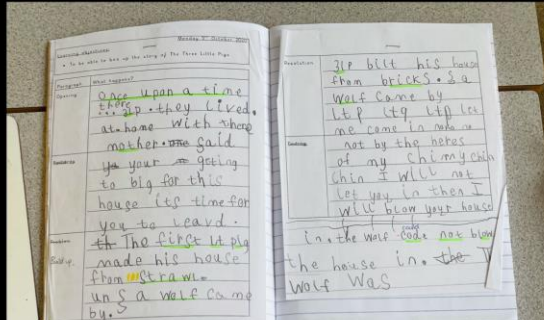 Monday 4th October 2021
Learning Objective:
To be able to box up the story of The Three Little Pigs
Paragraph What happens?
Opening
once upon a time
there
3 lp. they Lived.
at home with there
mother. said
your geting
to big for this
house its time for
you to leavd.
The first Lt pig
Build up.
made his house
from straw.
un S a wolf came
by.
Resolution
3lp bilt his house
from bricks. S a
wolf came by
Ltp Ltp Ltp let
me come in
Ending
not by the heres
of my chimy chin
chin I will not
let you in then I
will blow your house
in. the wolf code not blow
the house in. the
wolf was